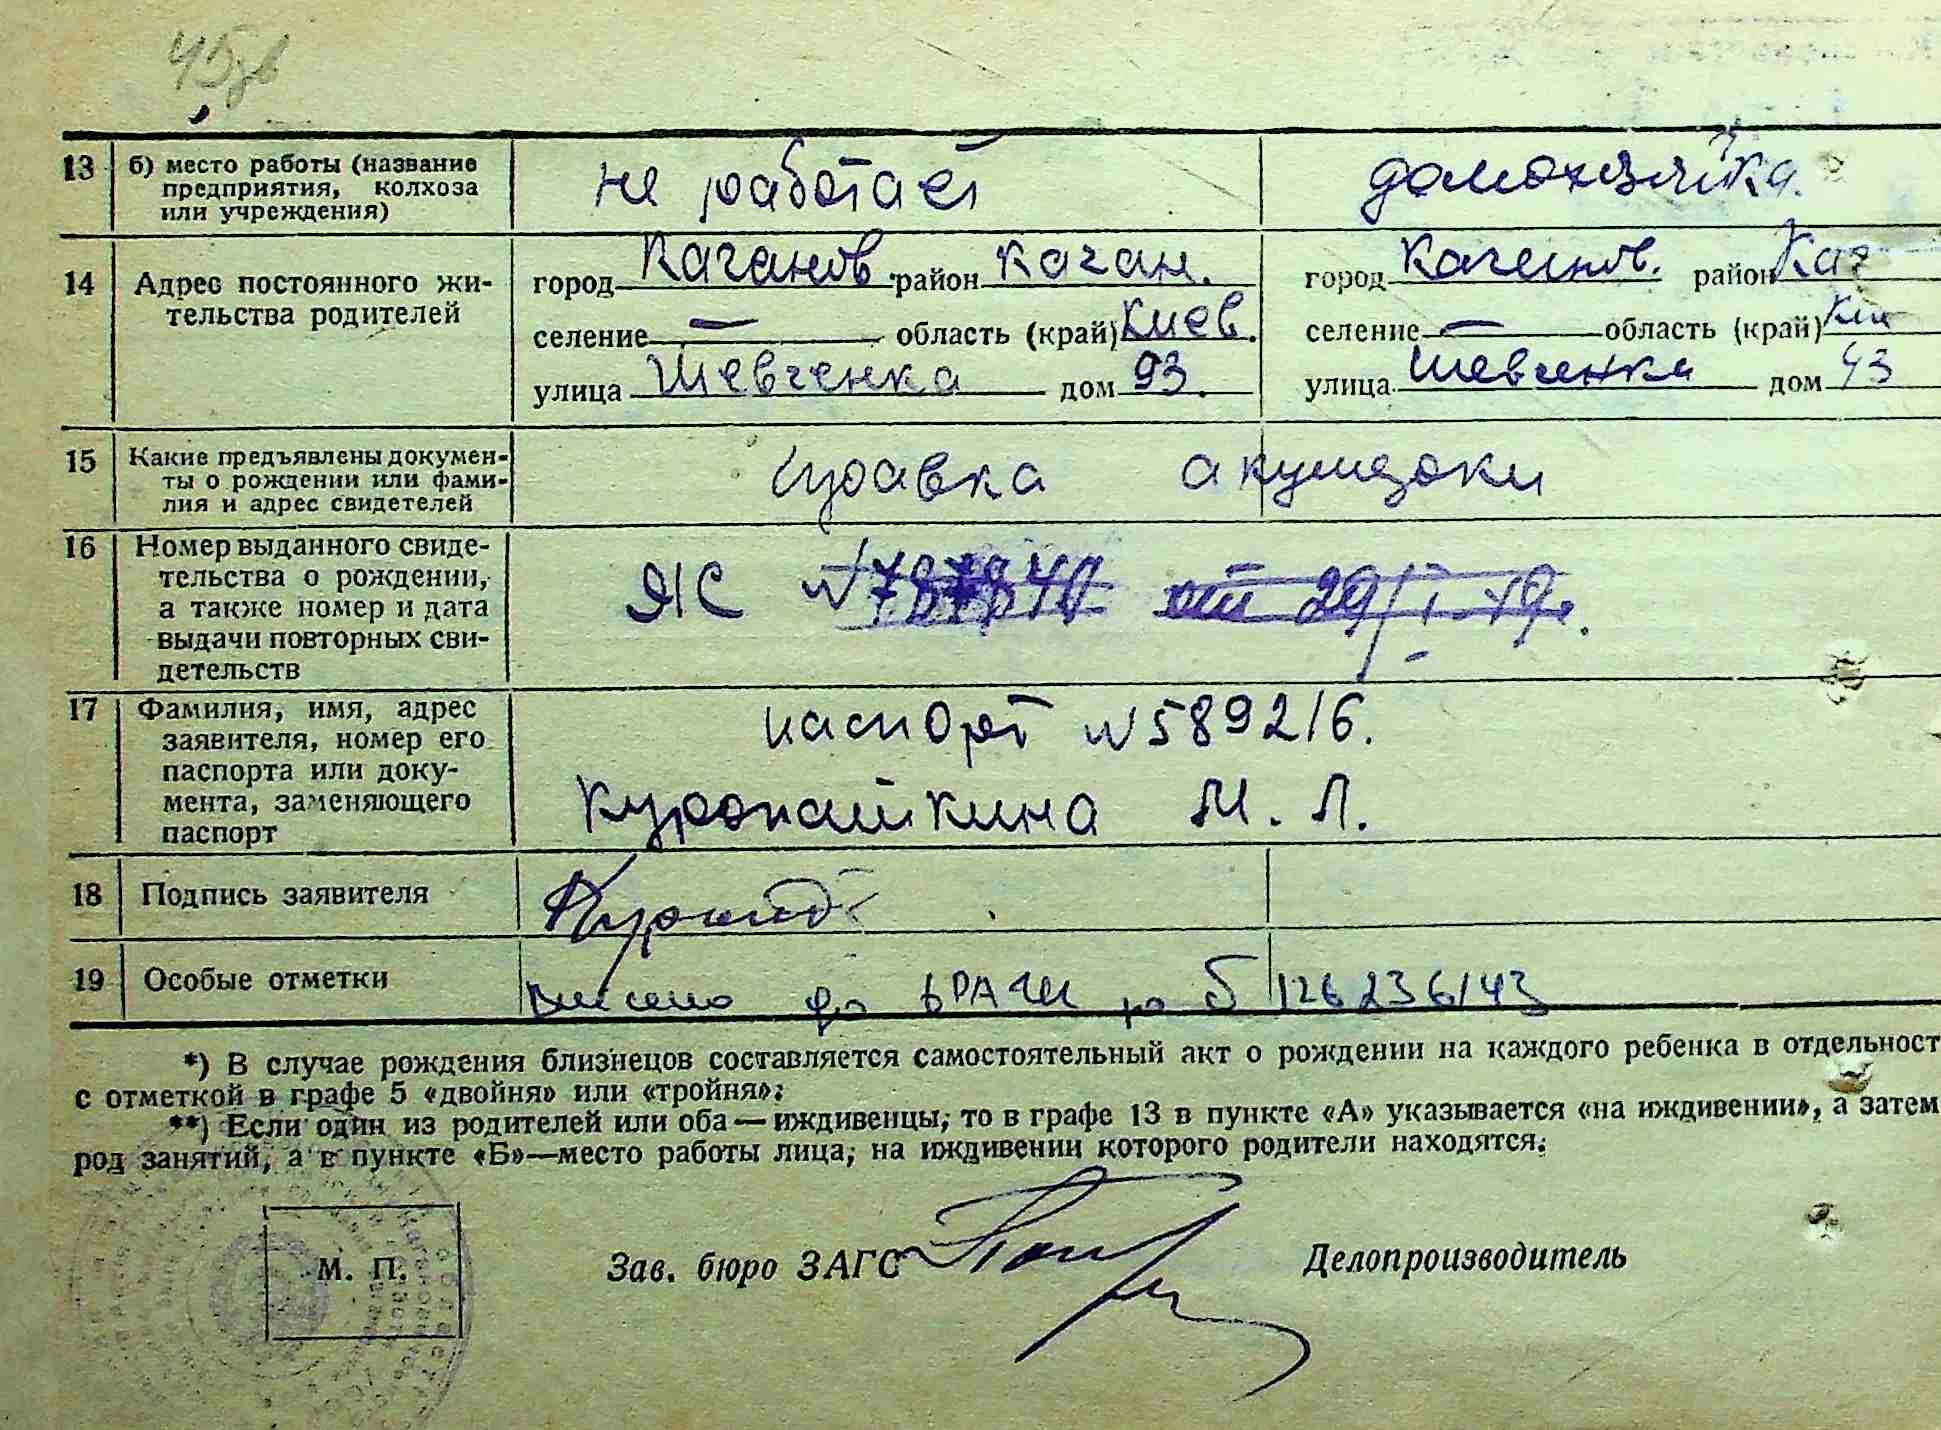 13 б) место работы (название предприятия, колхоза или учреждения) не работает домохазяйка.
14 Адрес постоянного жительства родителей
город Каганов. район Каган. город Каганов. район Каг
селение — область (край) Киев. селение — область (край)
улица Шевченка дом 93. улица Шевченка дом 93
15 Какие предъявлены документы о рождении или фамилия и адрес свидетелей справка акушерки
16 Номер выданного свидетельства о рождении, а также номер и дата выдачи повторных свидетельств ЯС № от 29/
17 Фамилия, имя, адрес заявителя, номер его паспорта или документа, заменяющего паспорт
паспорт № 589216.
Куропаткина М. Л.
18 Подпись заявителя
19 Особые отметки
*) В случае рождения близнецов составляется самостоятельный акт о рождении на каждого ребенка в отдельност
с отметкой в графе 5 «двойня» или «тройня»;
**) Если один из родителей или оба — иждивенцы, то в графе 13 в пункте «А» указывается «на иждивении», а затем
род занятий, а в пункте «Б»—место работы лица, на иждивении которого родители находятся.
М. П. Зав. бюро ЗАГС Делопроизводитель